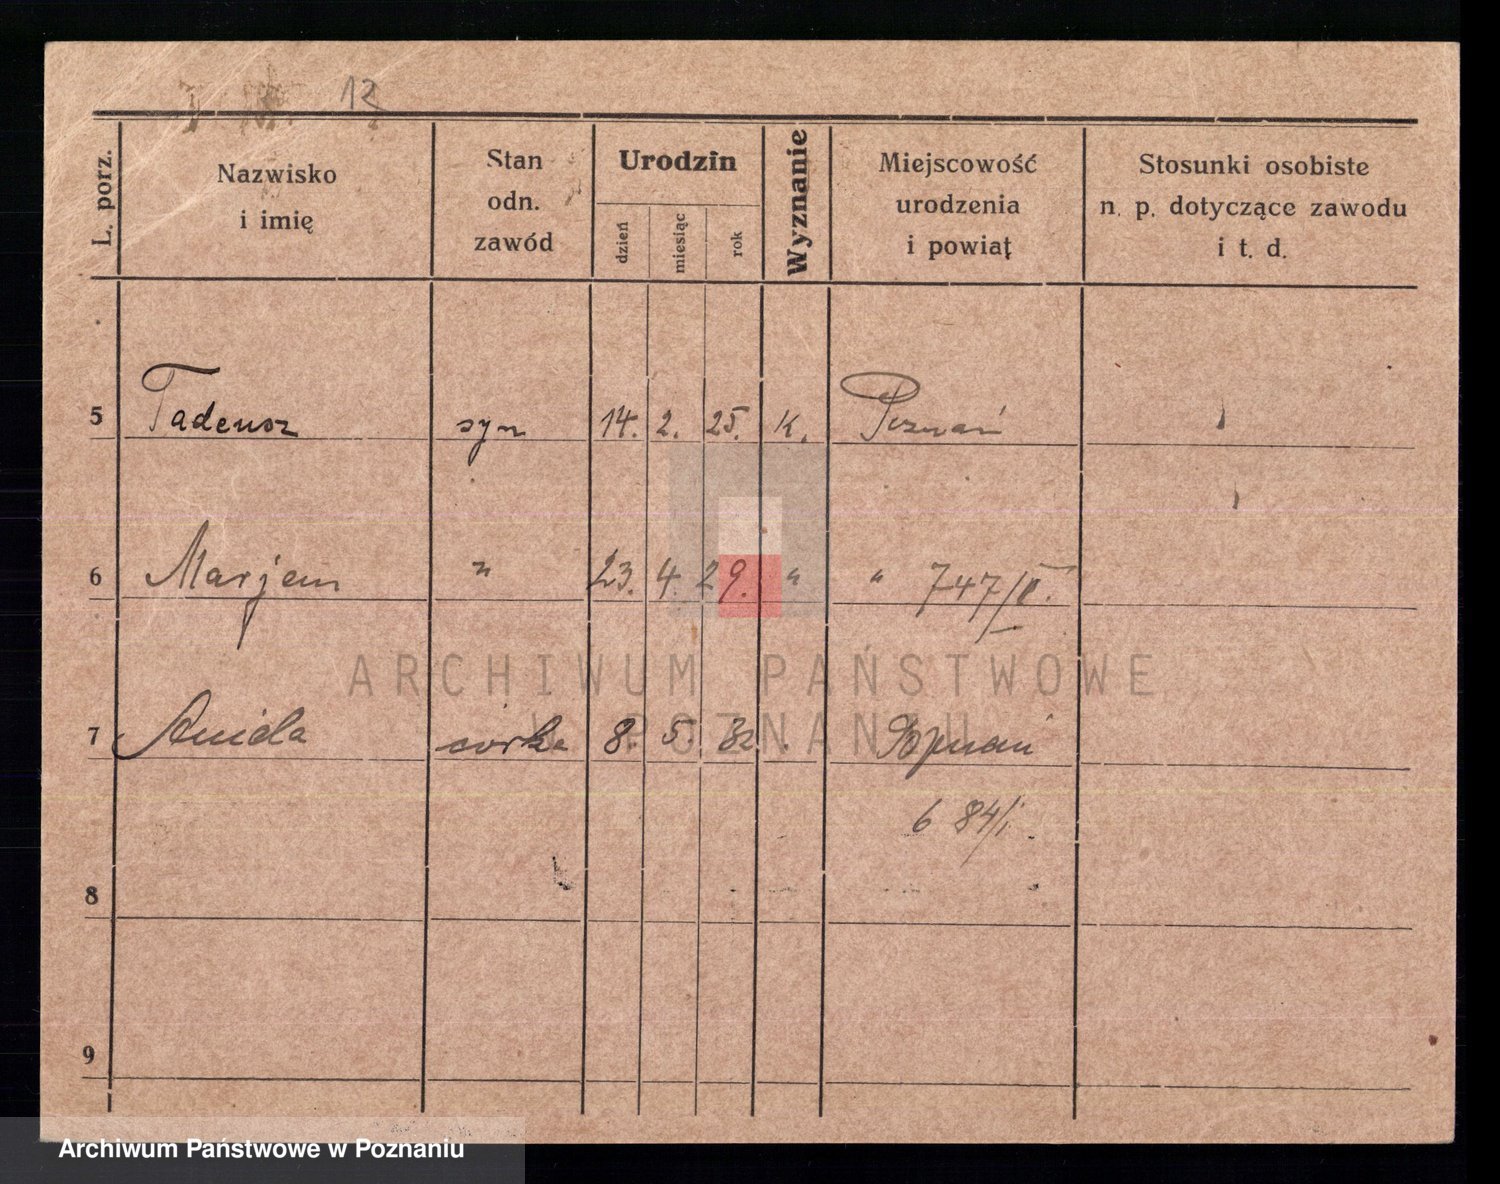 12
L. porz.
Nazwisko
i imię
Stan
odn.
zawód
Urodzin
dzień
miesiąc
rok
Wyznanie
Miejscowość
urodzenia
i powiat
Stosunki osobiste
n. p. dotyczące zawodu
i t. d.
5 Tadeusz syn 14. 2. 25. K. Poznań
6 Marjan " 23. 4. 29. " " 747/II.
7 córka 8. 5. 32 . Poznań
6 84/I.
8
9
ARCHIWUM PAŃSTWOWE
W POZNANIU
Archiwum Państwowe w Poznaniu